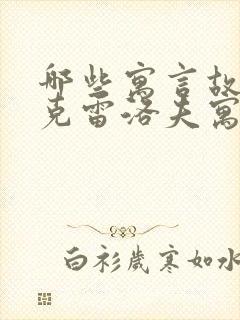 哪些寓言故
克雷洛夫寓
白衫岁寒如水